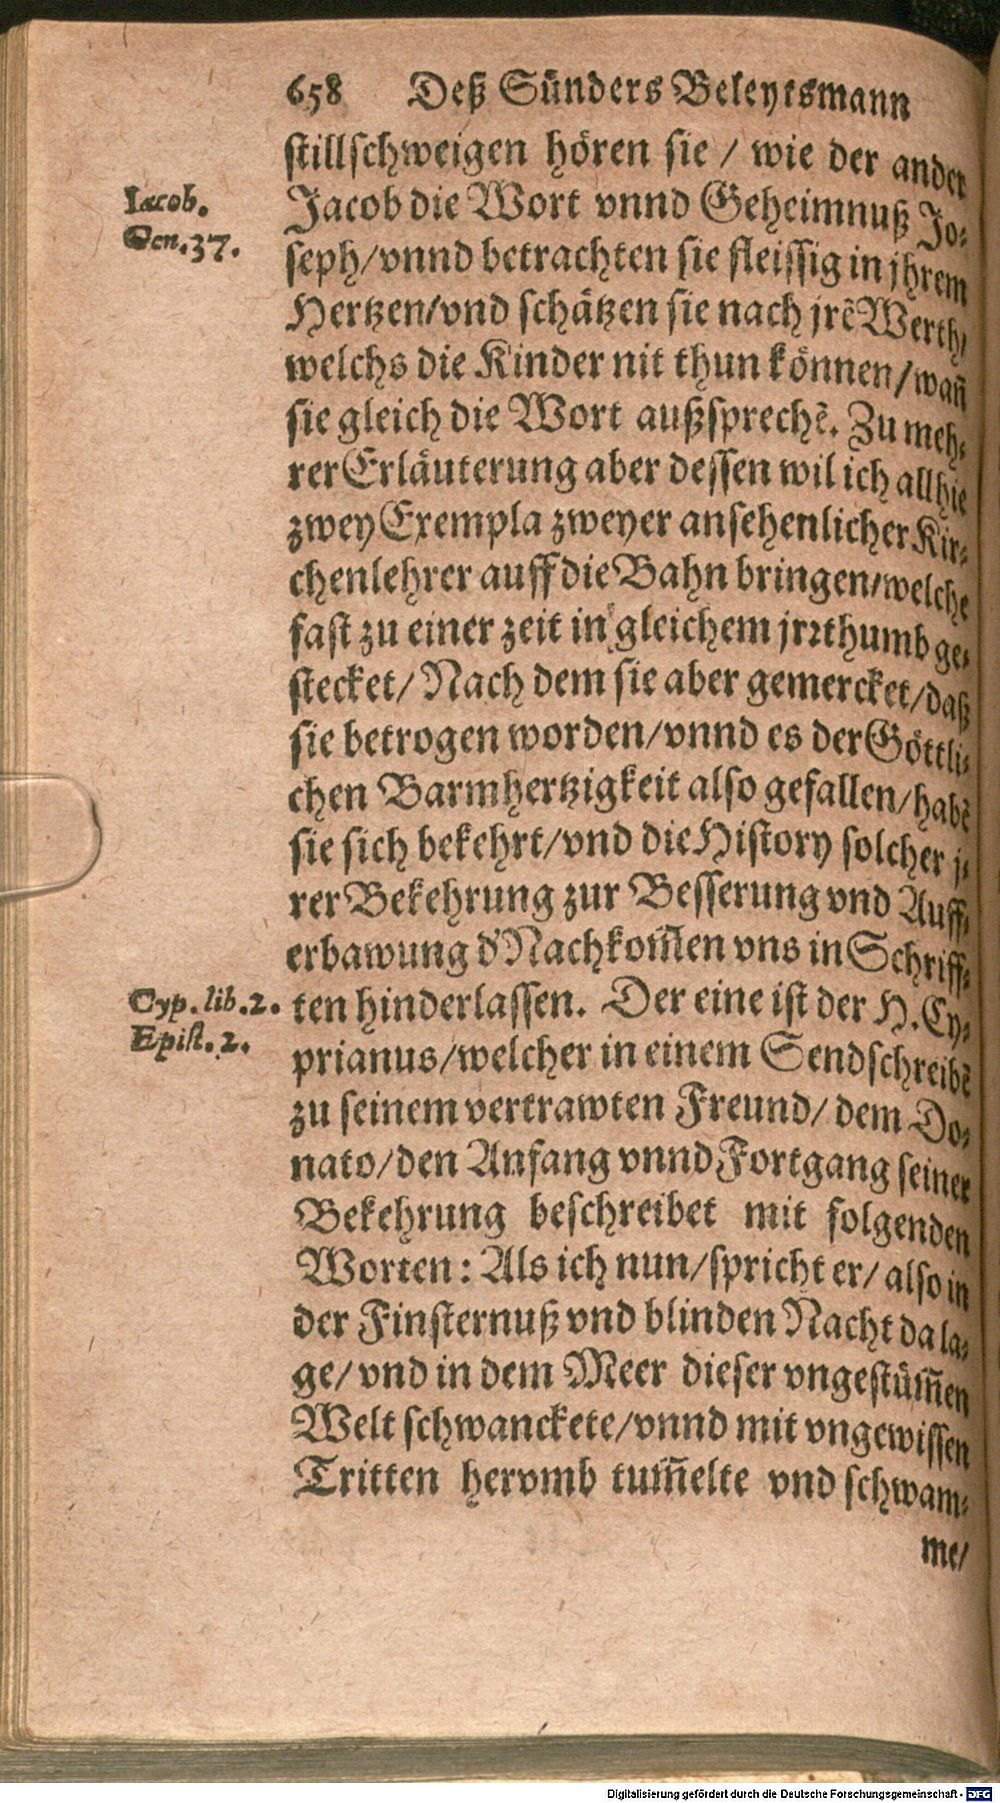 658 Deß Sünders Beleytsmann
stillschweigen hören sie / wie der ander
Iacob.
Gen. 37.
Jacob die Wort vnnd Geheimnuß Jo-
seph/vnnd betrachten sie fleissig in jhrem
Hertzen/vnd schätzen sie nach jrẽ Werth/
welchs die Kinder nit thun können/wañ
sie gleich die Wort außsprechẽ. Zu meh-
rer Erläuterung aber dessen wil ich allhie
zwey Exempla zweyer ansehenlicher Kir-
chenlehrer auff die Bahn bringen/welche
fast zu einer zeit in gleichem jrrthumb ge-
stecket/ Nach dem sie aber gemercket/daß
sie betrogen worden/vnnd es der Göttli-
chen Barmhertzigkeit also gefallen/habẽ
sie sich bekehrt/vnd die History solcher j-
rer Bekehrung zur Besserung vnd Auff-
erbawung d' Nachkom̃en vns in Schriff-
Cyp. lib. 2.
Epist. 2.
ten hinderlassen. Der eine ist der H. Cy-
prianus/welcher in einem Sendschreibẽ
zu seinem vertrawten Freund/ dem Do-
nato/den Anfang vnnd Fortgang seiner
Bekehrung beschreibet mit folgenden
Worten: Als ich nun/spricht er/ also in
der Finsternuß vnd blinden Nacht da la-
ge/ vnd in dem Meer dieser vngestüm̃en
Welt schwanckete/vnnd mit vngewissen
Tritten hervmb tum̃elte vnd schwam-
me/
Digitalisierung gefördert durch die Deutsche Forschungsgemeinschaft - DFG